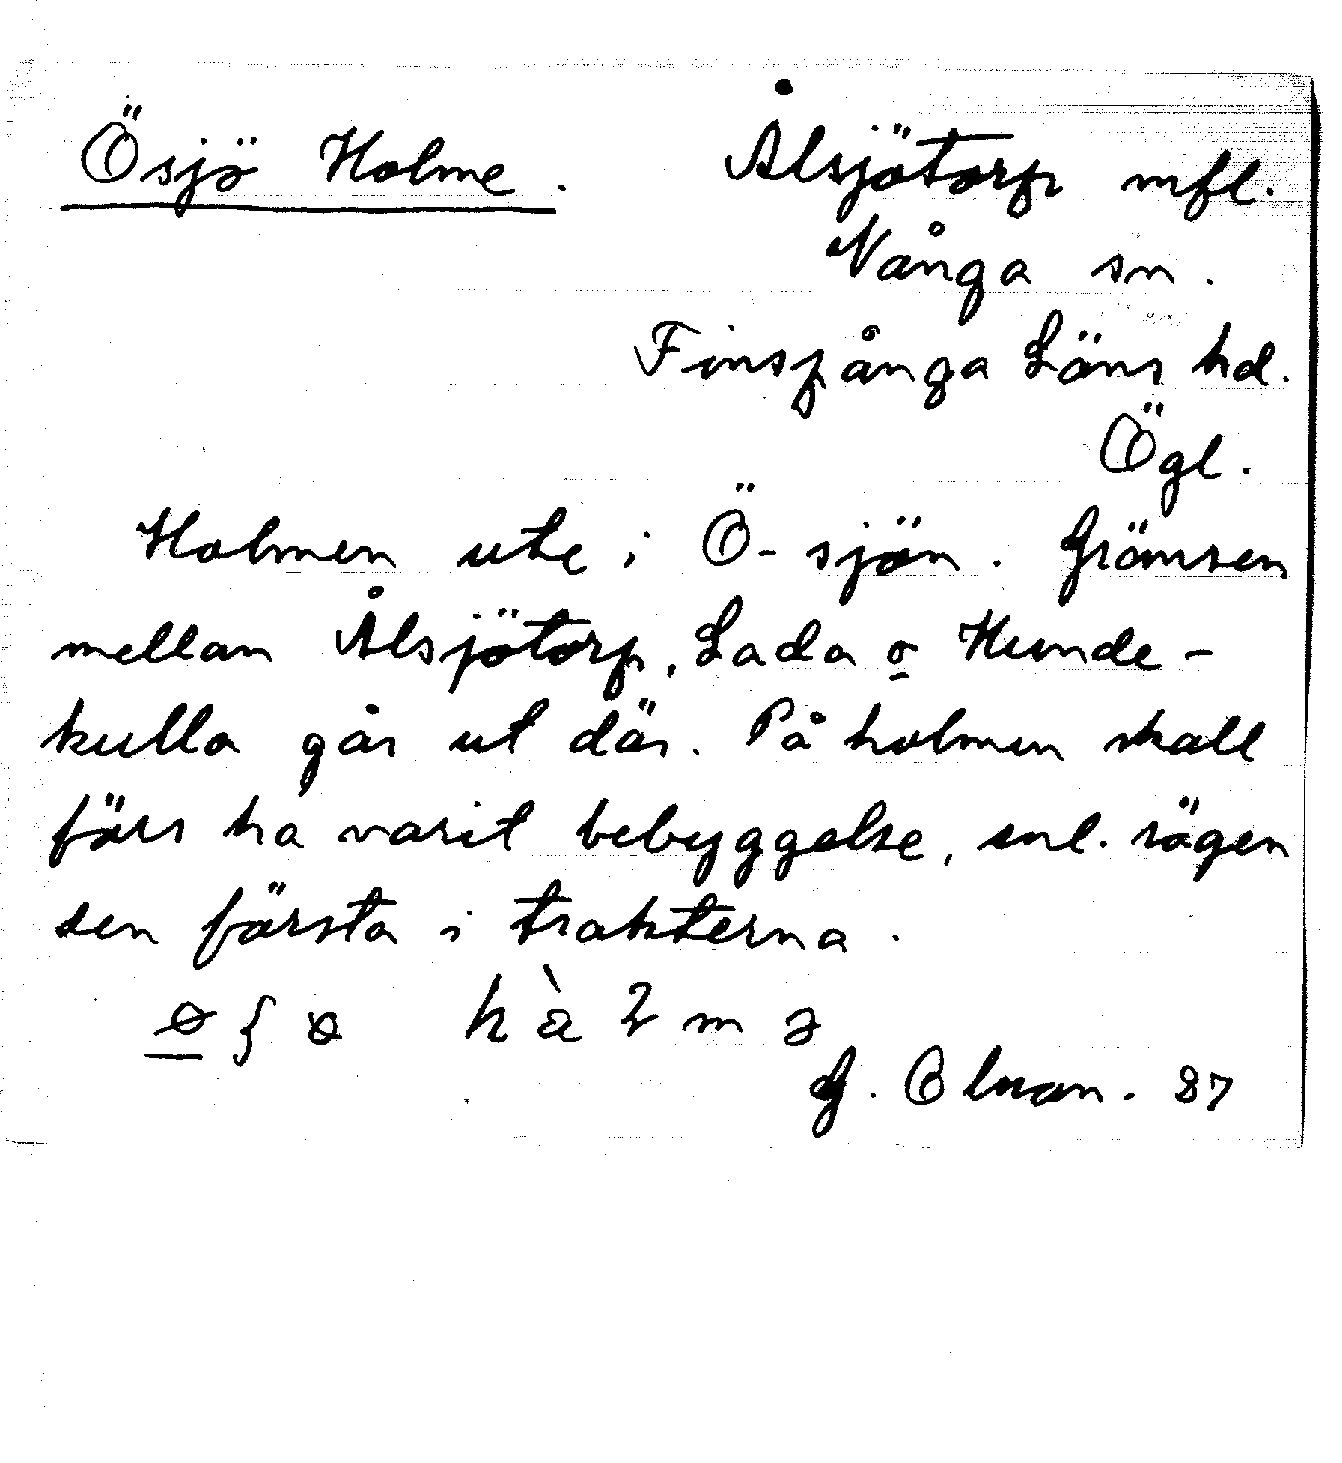 Ösjö Holme. Ålsjötorp mfl.
Vånga sn.
Finspånga Läns hd.
Ögl.
Holmen ute i Ö-sjön. Gränsen
mellan Ålsjötorp, Lada o Hunde-
kulla går ut där. På holmen skall
förr ha varit bebyggelse, enl. sägen
den första i trakterna.
G. Olman. 87